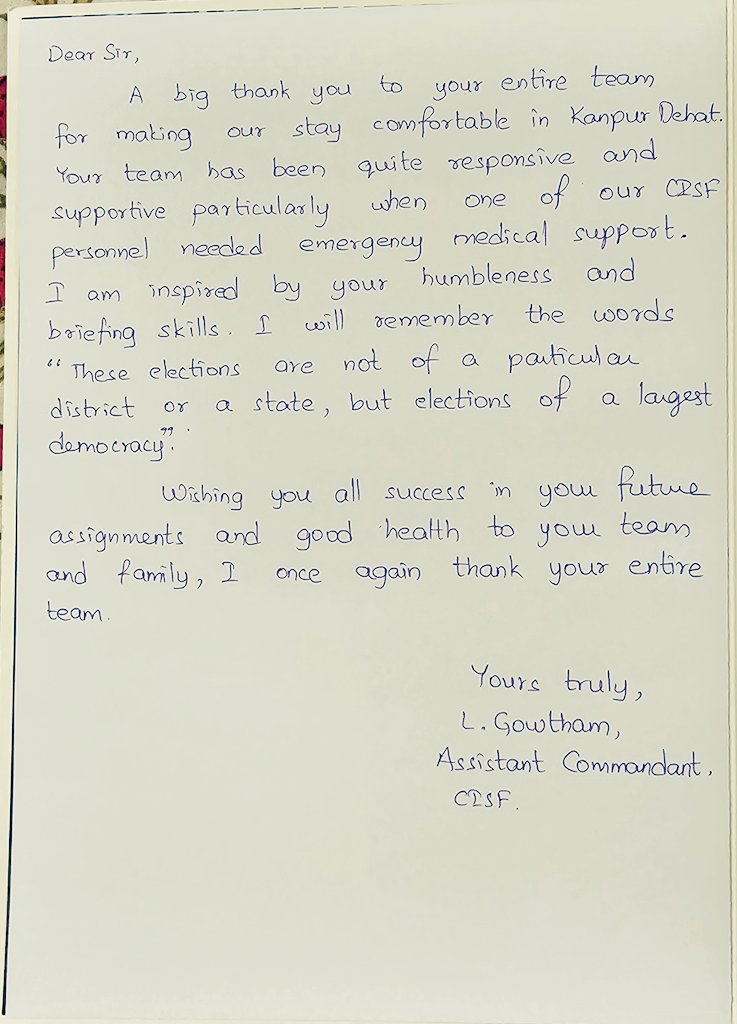 Dear Sir,
A big thank you to your entire team
for making our stay comfortable in Kanpur Dehat.
Your team has been quite responsive and
supportive particularly when one of our CISF
personnel needed emergency medical support.
I am inspired by your humbleness and
briefing skills. I will remember the words
“These elections are not of a particular
district or a state, but elections of a largest
democracy”.
Wishing you all success in your future
assignments and good health to your team
and family, I once again thank your entire
team.
Yours truly,
L. Gowtham,
Assistant Commandant,
CISF.